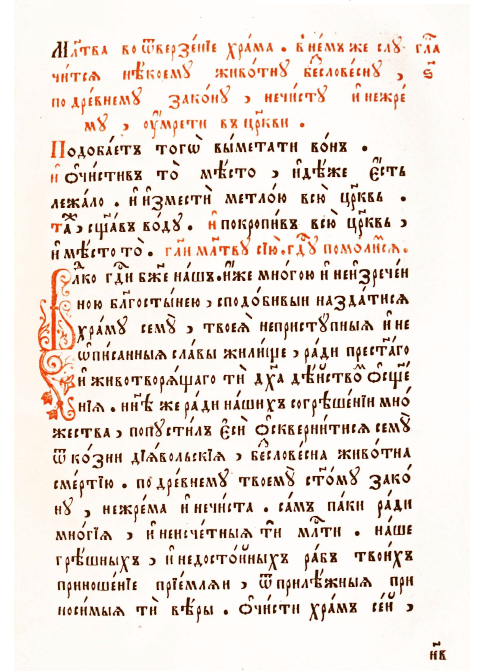 Мл҃тва во ѿверзе́нїе хра́ма . в не́мъ же слу- гла̀
чи́тся нѣ́коему живо́тну бе̾слове́сну , ѕ҃
по дре́внему зако́ну , нечи́сту и҆ нежре́
му , ᲂу҆мре́ти въ цр҃кви .
Подоба́етъ того̀ вы́метати во́нъ .
и҆ ѡ҆чи́стивъ то̀ мѣ́сто , и҆дѣ́же є҆́сть
лежа́ло . и҆ и҆зместѝ метло́ю всю̀ цр҃ковь .
та́ , сщ҃а́въ во́ду . и҆ покропи́въ всю̀ цр҃ковь ,
и҆ мѣ́сто то̀ . гл҃и мл҃тву сїю̀ . гд҃у помо́лимся .
Влⷣко гд҃и бж҃е на́шъ . и҆́же мно́гою и҆ неи҆зрече́н
ною блг҃осты́нею , сподо́бивыи назда́тися
хра́му сему̀ , твоея̀ непристу́пныя и҆ не
ѡ҆пи́санныя сла́вы жили́ще , ра́ди прест҃а́го
и҆ животворя́щаго тѝ дх҃а дѣ́йствомъ ѡ҆сщ҃е́
нїя . нн҃ѣ же ра́ди на́шихъ согрѣше́нїи мно́
жества , попусти́лъ є҆сѝ ѡ҆скверни́тися сему̀
ѿ ко́зни дїя́вольскїя , бе̾слове́сна живо́тна
сме́ртїю . по дре́внему твоему̀ ст҃о́му зако́
ну , нежре́ма и҆ нечи́ста . са́мъ па́ки ра́ди
мно́гїя , и҆ неисче́тныя тѝ мл҃ти . на́ше
грѣ́шныхъ , и҆ недосто́йныхъ ра́бъ твои́хъ
приноше́нїе прїе́мляи , ѿ прилѣ́жныя при
носи́мыя тѝ вѣ́ры . ѡ҆чи́сти хра́мъ се́й ,
н҃в